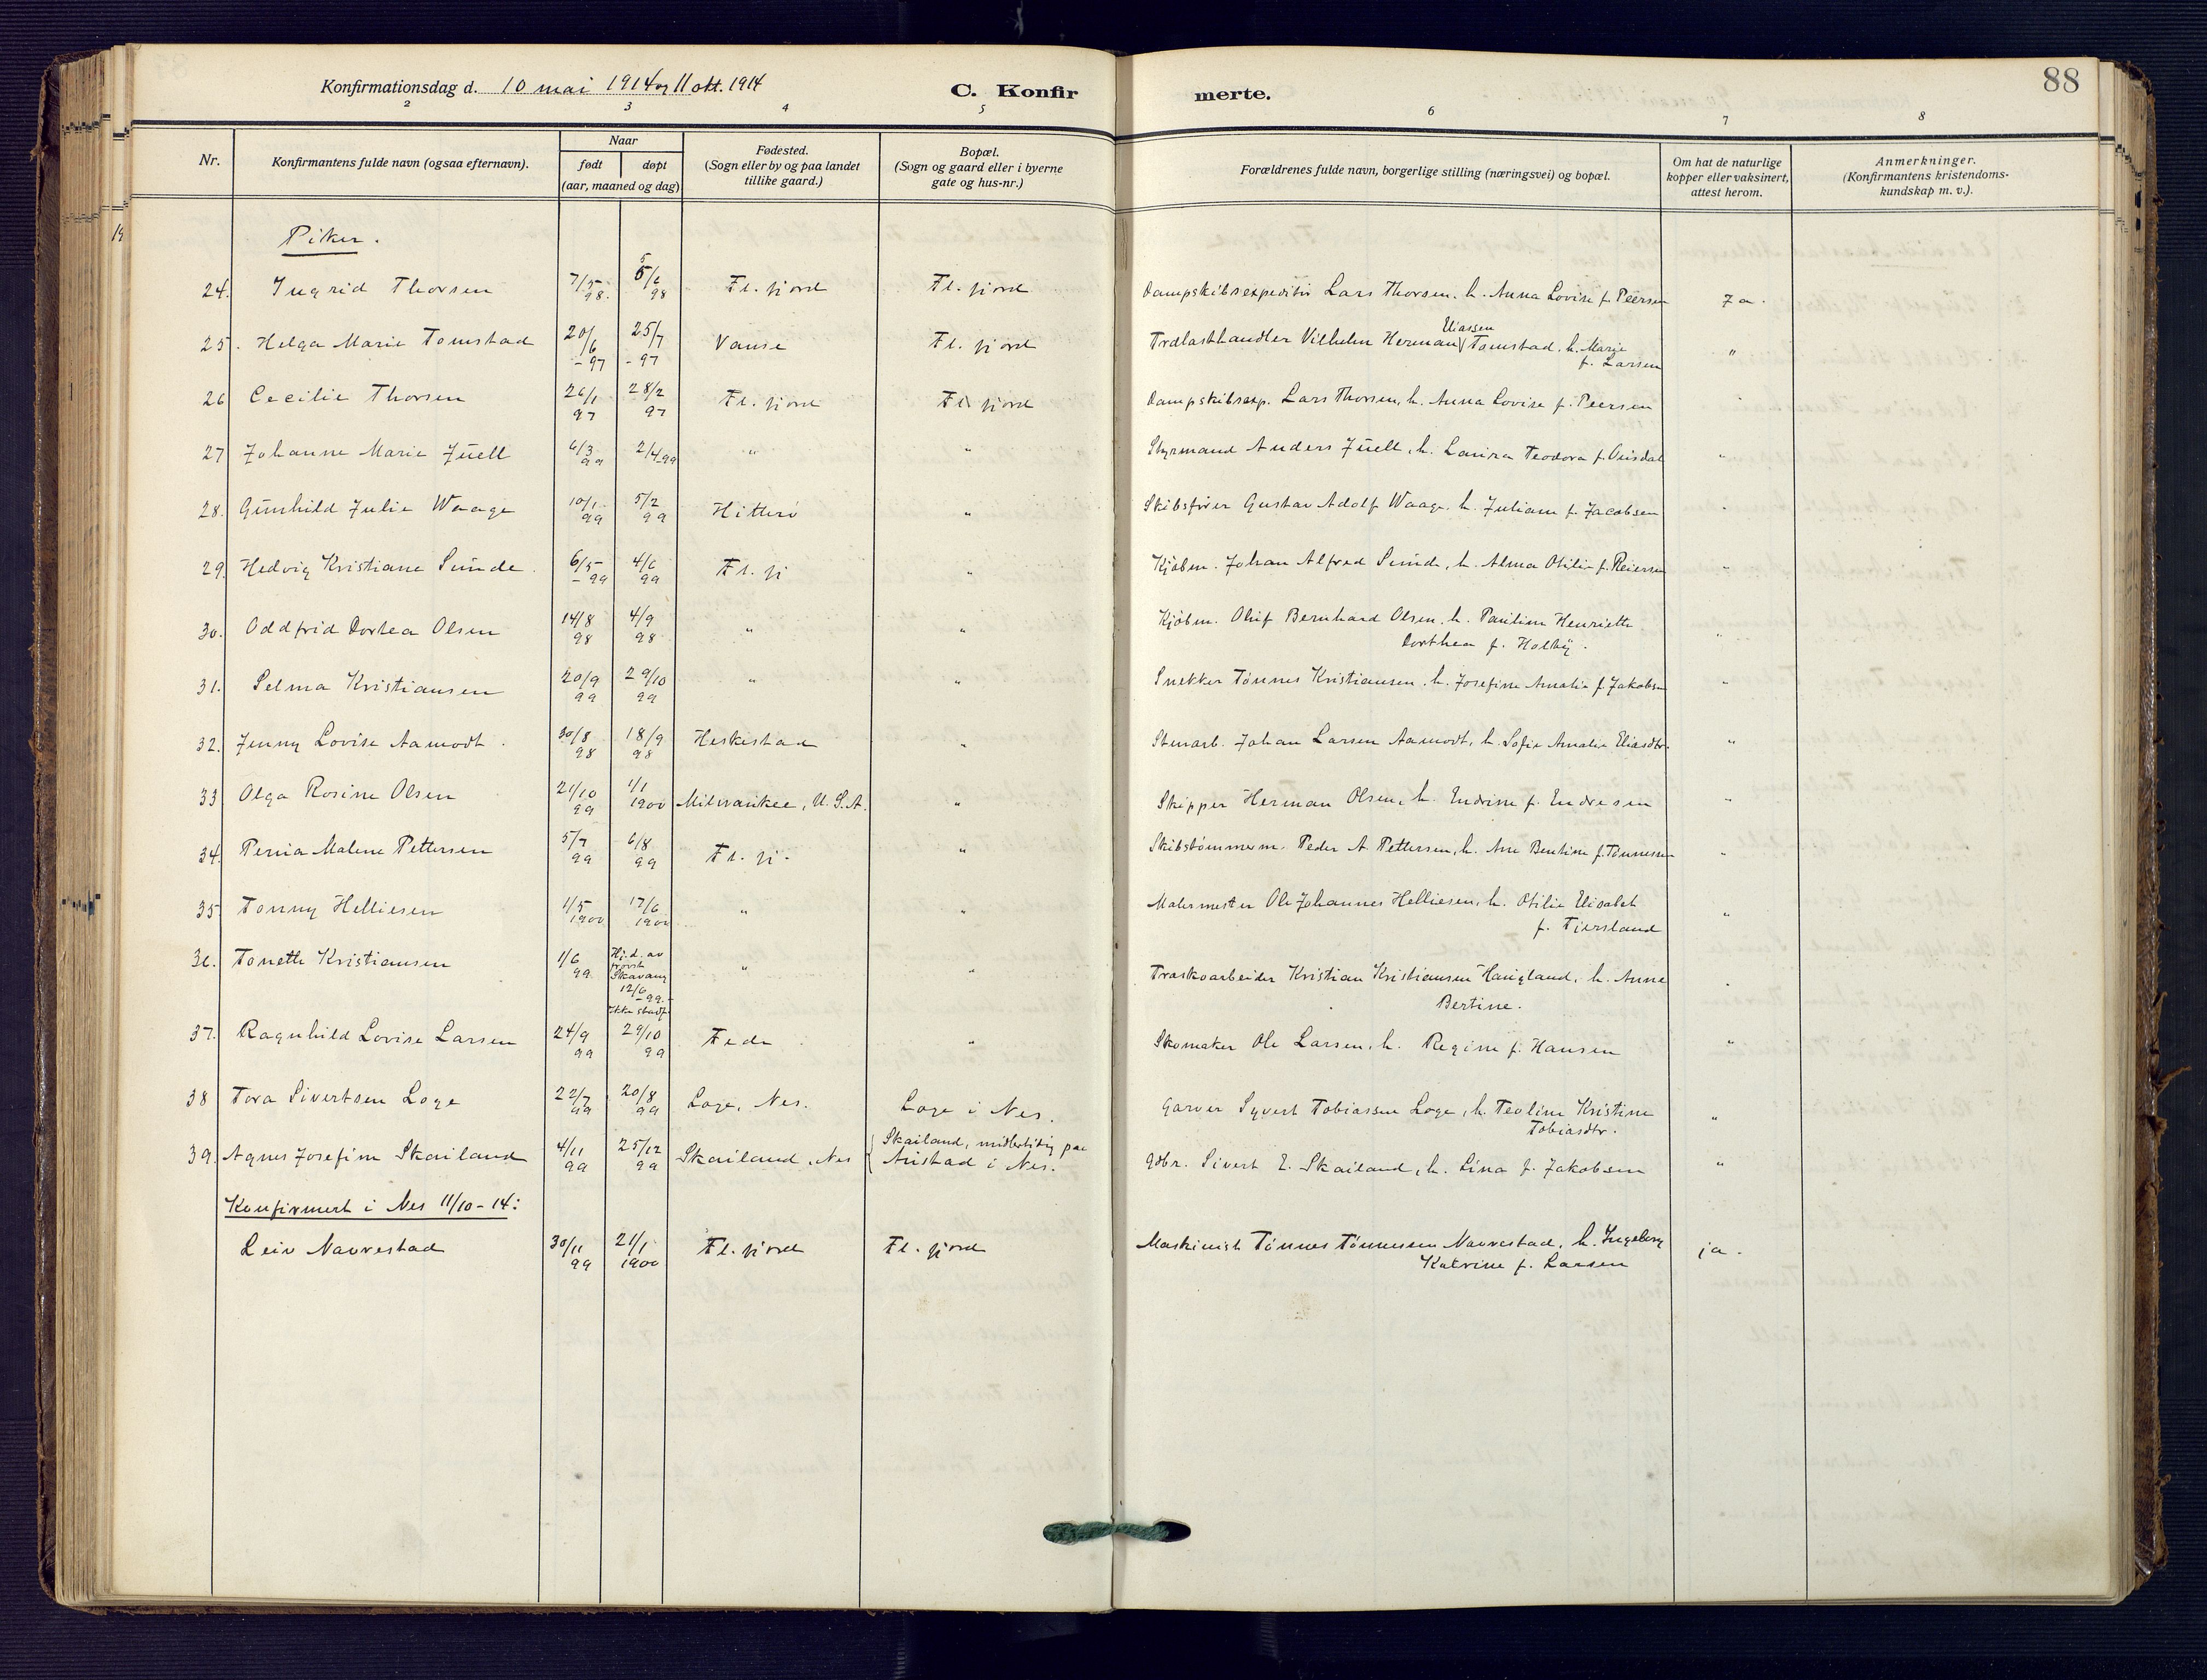 88
Konfirmationsdag d. 10 mai 1914 og 11 okt. 1914
C. Konfir
merte.
2 3 4 5 6 7 8
Nr.
Konfirmantens fulde navn (ogsaa efternavn).
Naar
født døpt
(aar, maaned og dag)
Fødested.
(Sogn eller by og paa landet
tillike gaard.)
Bopæl.
(Sogn og gaard eller i byerne
gate og hus-nr.)
Forældrenes fulde navn, borgerlige stilling (næringsvei) og bopæl.
Om hat de naturlige
kopper eller vaksinert,
attest herom.
Anmerkninger.
(Konfirmantens kristendoms-
kundskap m. v.).
19
Piker.
24. Ingrid Thorsen 7/5 98. 5/6 98 Fl. fjord Fl. fjord Dampskibsexpeditør Lars Thorsen. h. Anna Lovise f. Peersen Ja.
25. Helga Marie Tomstad 20/6 -97 25/7 -97 Vanse Fl. fjord Trælasthandler Vilhelm Herman Eliassen Tomstad. h. Marie
f. Larsen "
26 Cecilie Thorsen 26/1 97 28/2 97 Fl. fjord Fl. fjord Dampskibsexp. Lars Thorsen, h. Anna Lovise f. Peersen "
27 Johanne Marie Juell 6/3 99 2/4 99 " " Styrmand Anders Juell, h. Laura Teodora f. "
28. Gunhild Julie Waage 10/1 99 5/2 99 Hitterø " Skibsfører Gustav Adolf Waage. h. Juliane f. Jacobsen "
29. Hedvig Kristiane Sunde. 6/5 -99 4/6 99 Fl. fj " Kjøbm. Johan Alfred Sunde, h. Alma Otilie f. Reiersen "
30. Oddfrid Dortea Olsen 14/8 98 4/9 98 " " Kjøbm. Oluf Bernhard Olsen, h. Pauline Henriette
Dorthea f. Holby. "
31. Selma Kristiansen 20/9 99 29/10 99 " " Snekker Tønnes Kristiansen. h. Josefine Amalie f. Jakobsen "
32. Jenny Lovise Aamodt. 30/8 98 18/9 98 Heskestad " Stenarb. Johan Larsen Aamodt, h. Sofie Amalie Eliasdtr. "
33 Olga Rosine Olsen 21/10 99 1/1 1900 Milwaukee, U. S. A. " Skipper Herman Olsen, h. Endrine f. Endresen "
34. Penia Malene Pettersen 5/7 99 6/8 99 Fl. fj. " Skibstømmerm. Peder A. Pettersen, h. Ane Bentine f. Tønnesen "
35 Tonny Helliesen 1/5 1900 17/6 1900 " " Malermester Ole Johannes Helliesen, h. Otilie Elisabet
f. Tjersland "
36. Tonette Kristiansen 1/6 99 Hj. d. av
provst
Skavang
12/6 -99.-
ikke stadf. " " Træskoarbeider Kristian Kristiansen Haugland, h. Anne
Bertine. "
37. Ragnhild Lovise Larsen 24/9 99 29/10 99 Feda " Skomaker Ole Larsen, h. Regine f. Hansen "
38 Tora Sivertsen Loge 22/7 99 20/8 99 Loge, Nes. Loge i Nes. Garver Syvert Tobiassen Loge, h. Teoline Kristine
Tobiasdtr. "
39. Agnes Josefine Skailand 4/11 99 25/12 99 Skailand, Nes Skailand, midlertidig paa
Anistad i Nes. Gdbr. Sivert E. Skailand, h. Lina f. Jakobsen "
Konfirmert i Nes 11/10-14:
Leiv Navrestad 30/11 99 21/1 1900 Fl. fjord Fl. fjord Maskinist Tønnes Tønnessen Navrestad, h. Ingeborg
Katrine f. Larsen ja.